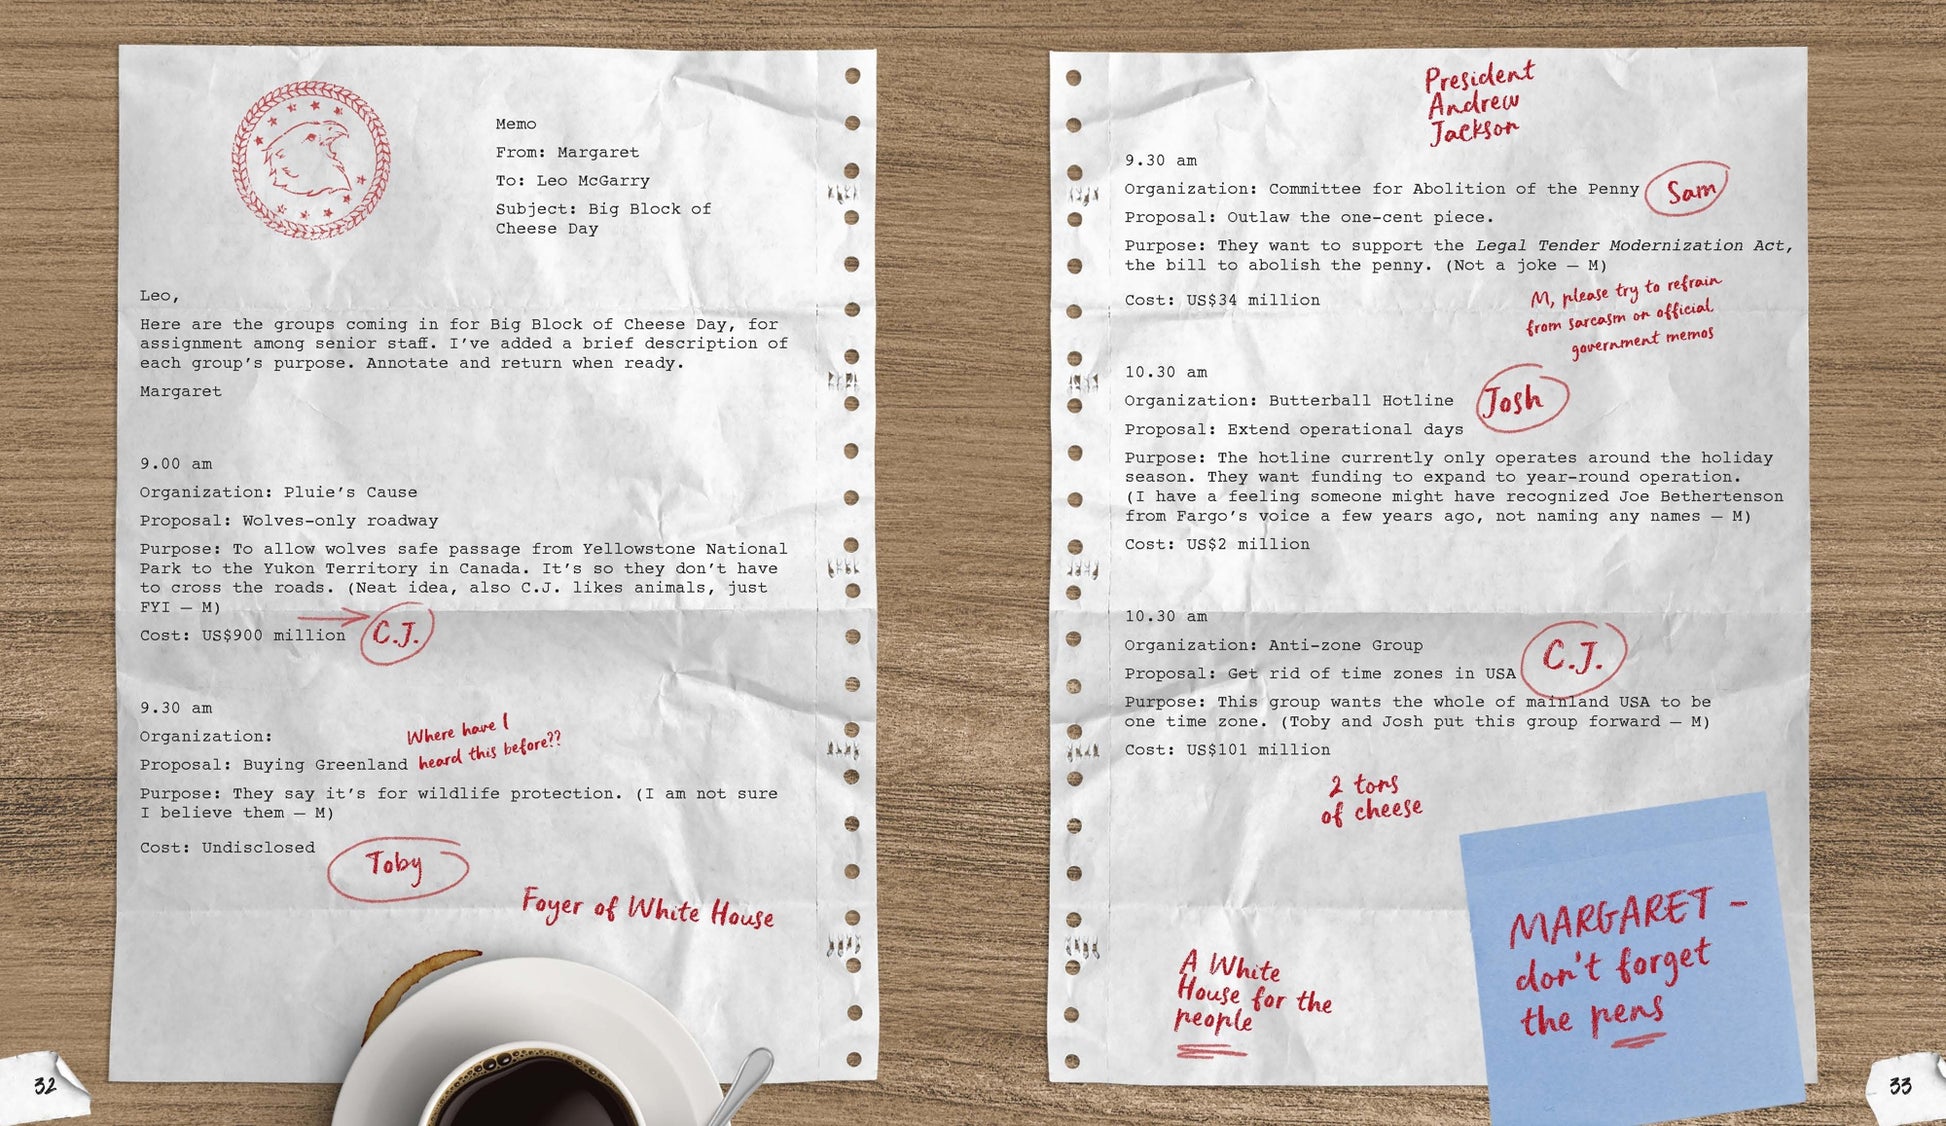 Memo
From: Margaret
To: Leo McGarry
Subject: Big Block of
Cheese Day
Leo,
Here are the groups coming in for Big Block of Cheese Day, for
assignment among senior staff. I've added a brief description of
each group's purpose. Annotate and return when ready.
Margaret
9.00 am
Organization: Pluie's Cause
Proposal: Wolves-only roadway
Purpose: To allow wolves safe passage from Yellowstone National
Park to the Yukon Territory in Canada. It's so they don't have
to cross the roads. (Neat idea, also C.J. likes animals, just
FYI – M)
Cost: US$900 million
C.J.
9.30 am
Organization:
Proposal: Buying Greenland
Where have I
heard this before??
Purpose: They say it's for wildlife protection. (I am not sure
I believe them – M)
Cost: Undisclosed
Toby
Foyer of White House
32
President
Andrew
Jackson
9.30 am
Organization: Committee for Abolition of the Penny
Sam
Proposal: Outlaw the one-cent piece.
Purpose: They want to support the Legal Tender Modernization Act,
the bill to abolish the penny. (Not a joke – M)
Cost: US$34 million
M, please try to refrain
from sarcasm on official
government memos
10.30 am
Organization: Butterball Hotline
Josh
Proposal: Extend operational days
Purpose: The hotline currently only operates around the holiday
season. They want funding to expand to year-round operation.
(I have a feeling someone might have recognized Joe Bethertenson
from Fargo's voice a few years ago, not naming any names – M)
Cost: US$2 million
10.30 am
Organization: Anti-zone Group
C.J.
Proposal: Get rid of time zones in USA
Purpose: This group wants the whole of mainland USA to be
one time zone. (Toby and Josh put this group forward – M)
Cost: US$101 million
2 tons
of cheese
A White
House for the
people
MARGARET –
don't forget
the pens
33